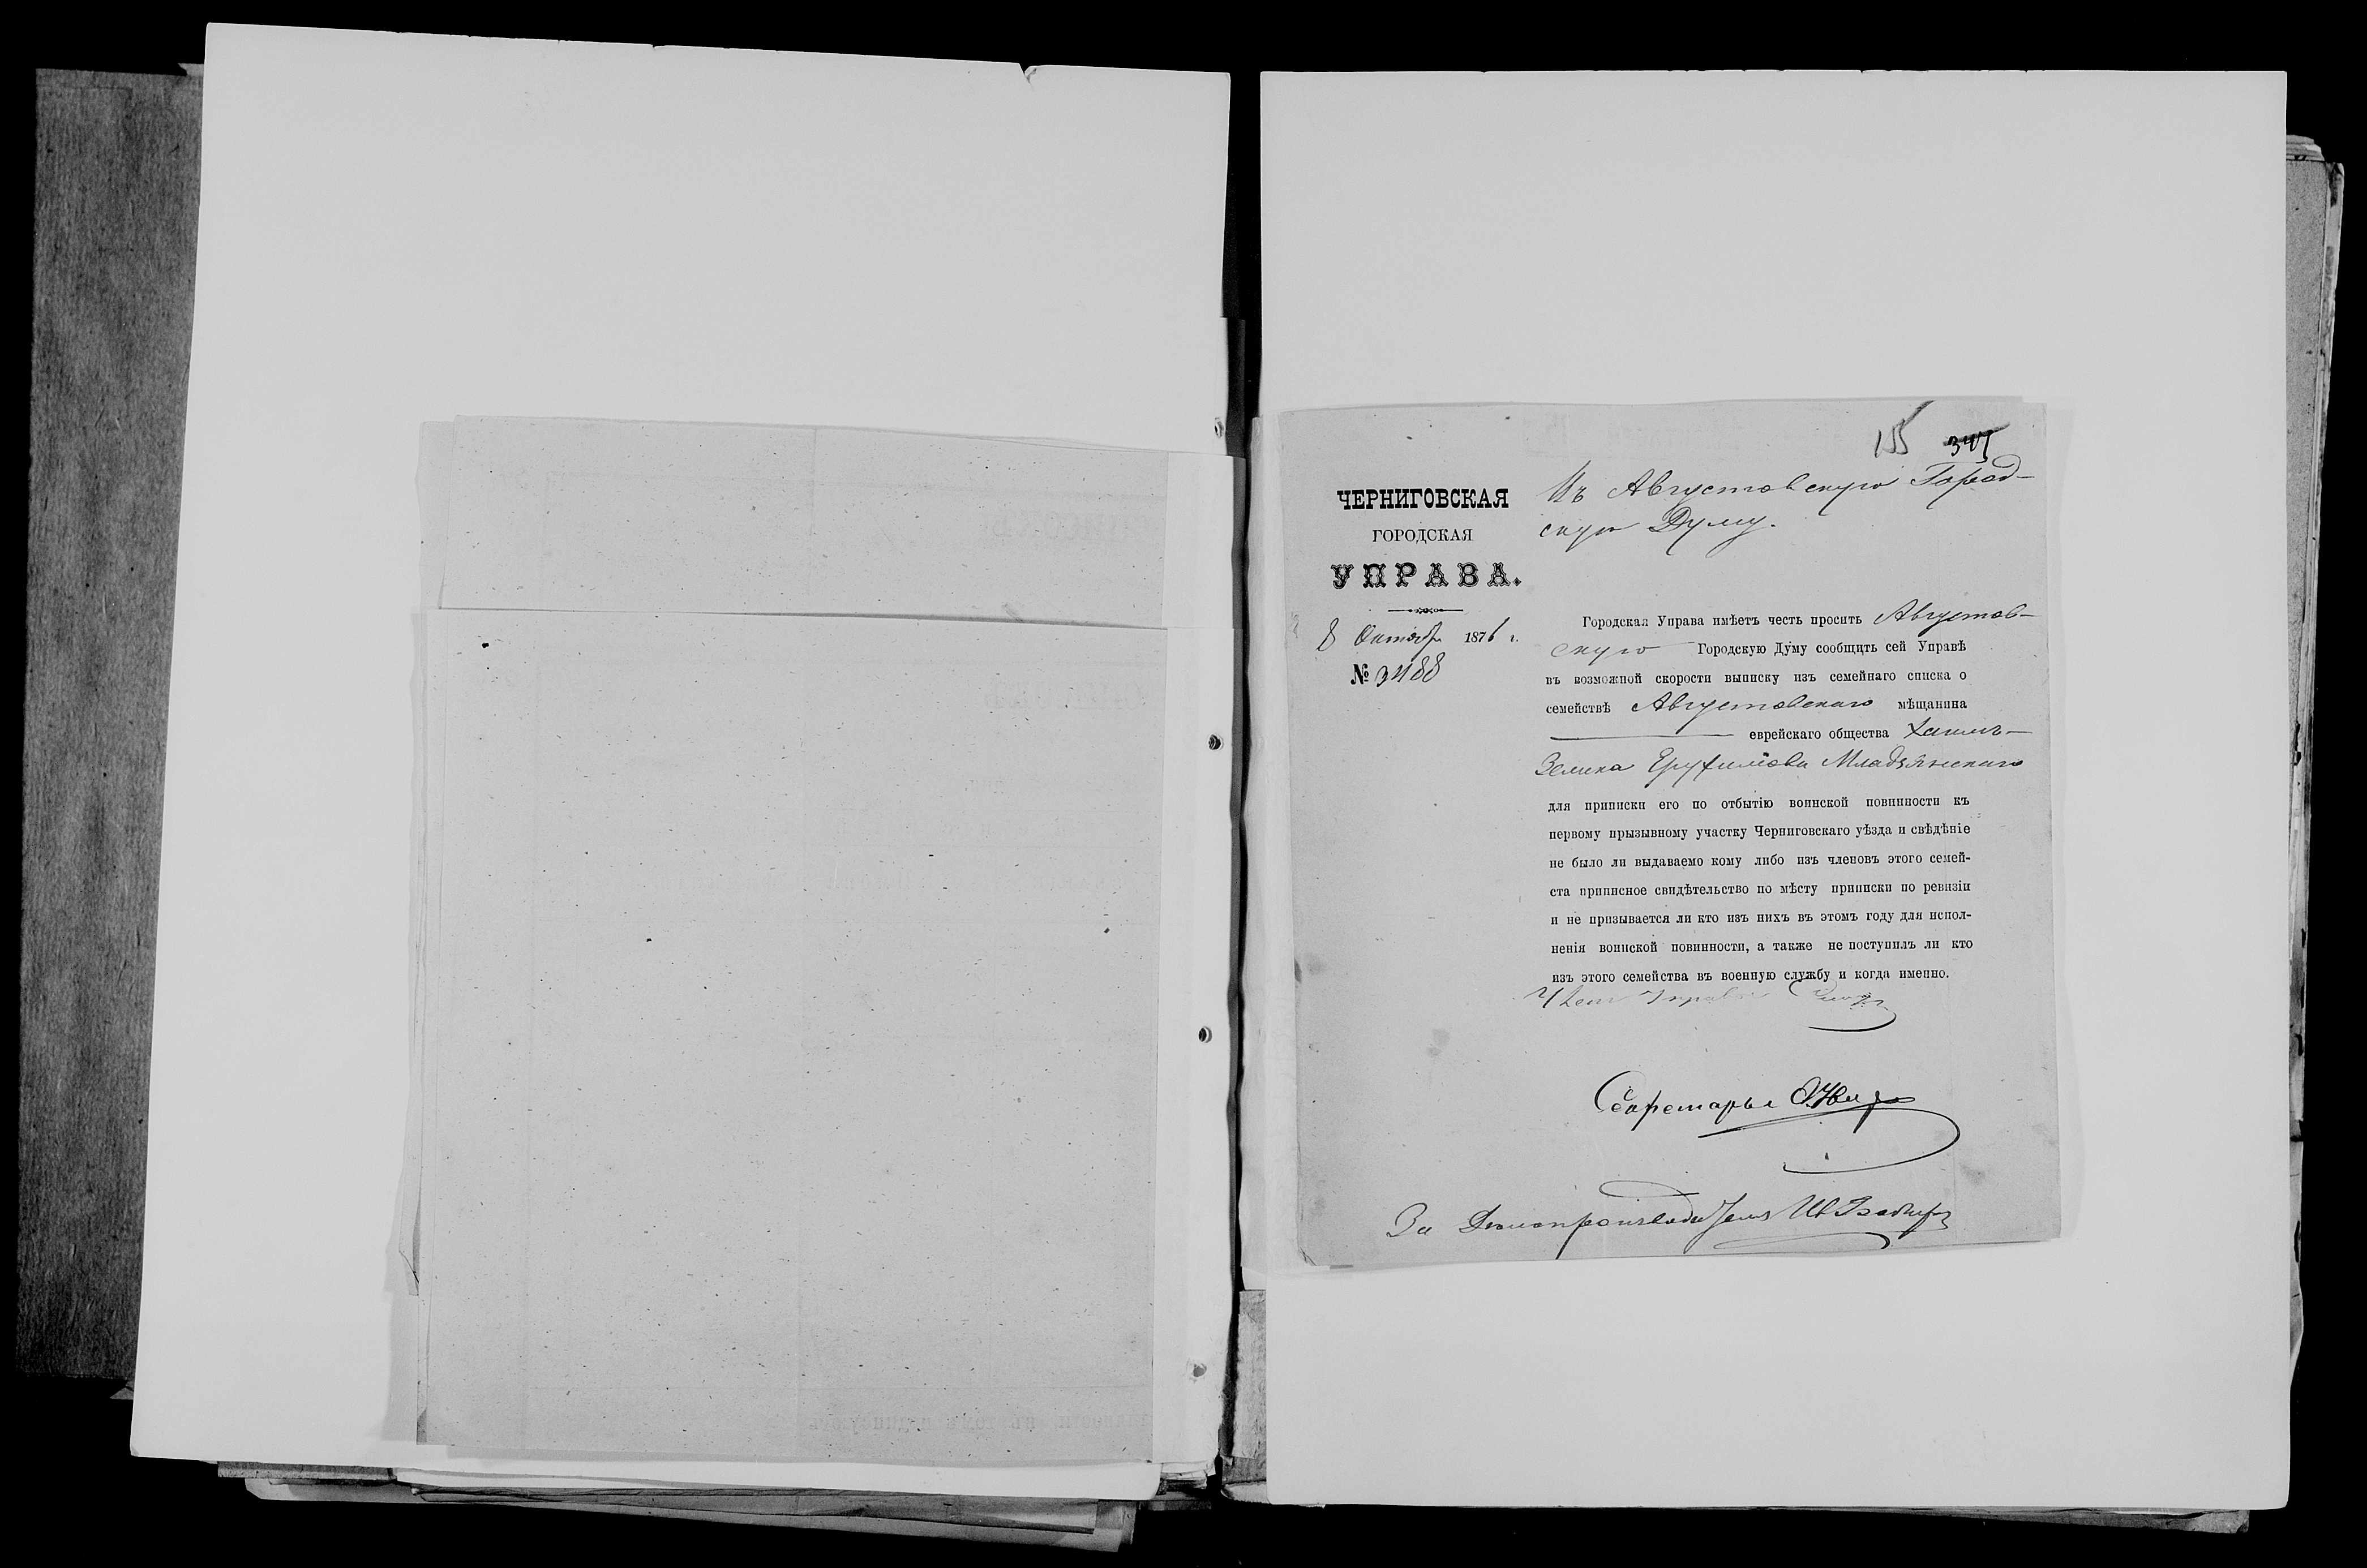 155 345
ЧЕРНИГОВСКАЯ
ГОРОДСКАЯ
УПРАВА.
8 Октября 1876 г.
№ 3488
Въ Августовскую Город-
скую Думу.
Городская Управа имѣетъ честь просить Августов-
скую Городскую Думу сообщить сей Управѣ
въ возможной скорости выписку изъ семейнаго списка о
семействѣ Августовскаго мѣщанина
еврейскаго общества Хаимъ-
Зелика Ерухимова Младзянскаго
для приписки его по отбытію воинской повинности къ
первому прызывному участку Черниговскаго уѣзда и свѣдѣніе
не было ли выдаваемо кому либо изъ членовъ этого семей-
ста приписное свидѣтельство по мѣсту приписки по ревизіи
и не призывается ли кто изъ нихъ въ этомъ году для испол-
ненія воинской повинности, а также не поступилъ ли кто
изъ этого семейства въ военную службу и когда именно.
Членъ Управы
Секретарь
За Делопроизводителя